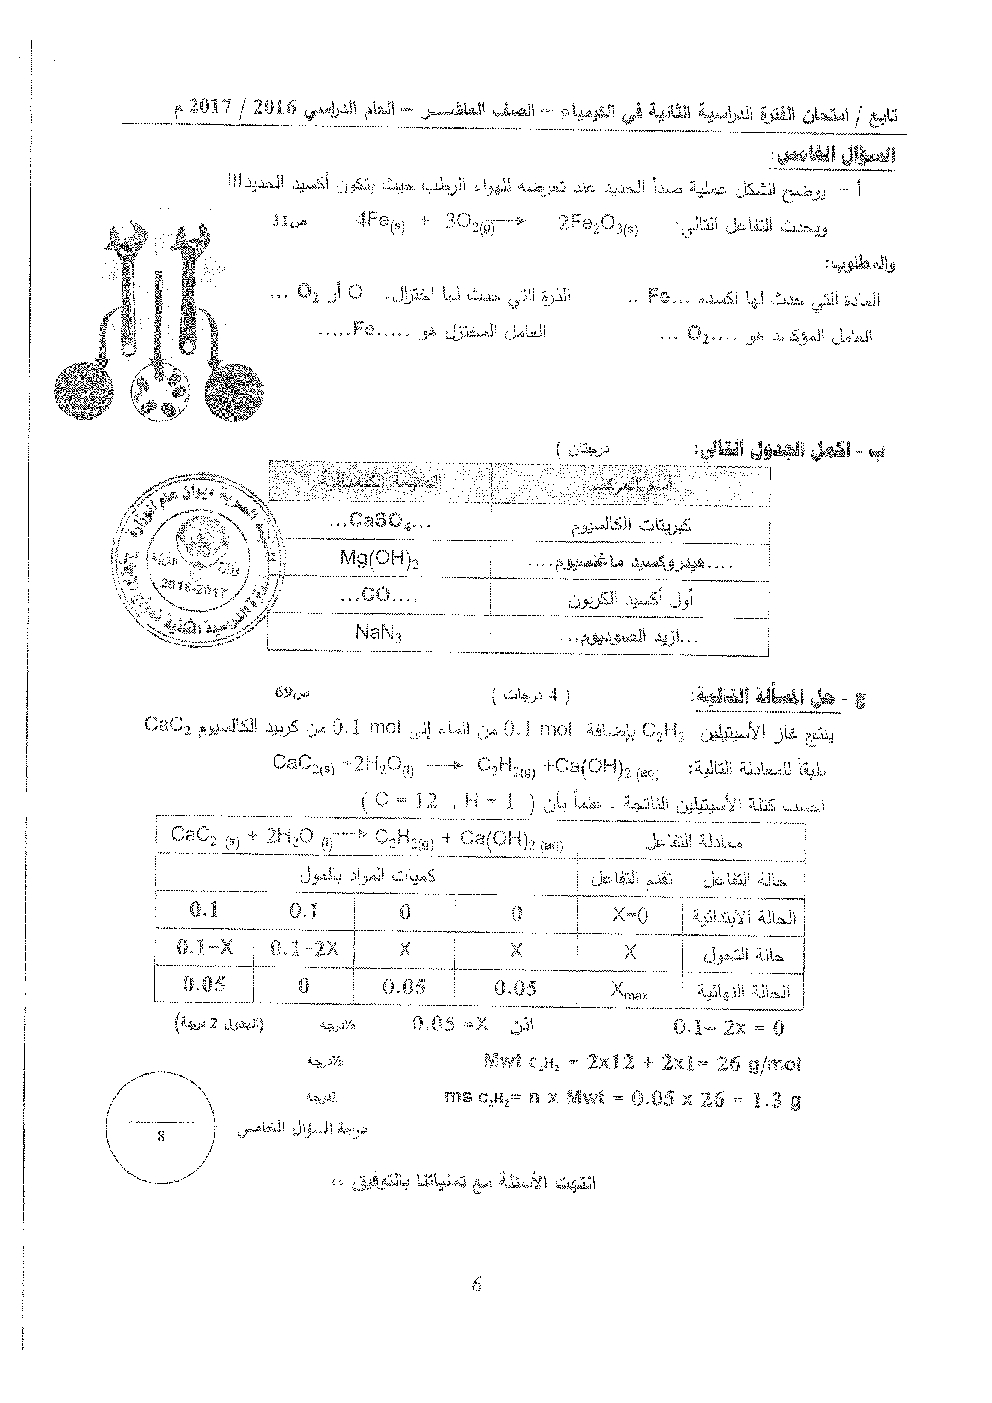 تابع / امتحان الفترة الدراسية الثانية في الكيمياء – الصف العاشر – العام الدراسي 2016 / 2017 م
السؤال الخامس:
أ – يوضح الشكل عملية صدأ الحديد عند تعرضه للهواء الرطب حيث يتكون أكسيد الحديد III
ويحدث التفاعل التالي: 4Fe(s) + 3O2(g) → 2Fe2O3(s) ص31
والمطلوب:
المادة التي حدث لها اكسده ...Fe .. الذرة التي حدث لها اختزال. O أر O2 ...
العامل المؤكسد هو ....O2 ... العامل المختزل هو .....Fe.....
ب - اكمل الجدول التالي: درجتان )
اسم المركب الصيغة الكيميائية
كبريتات الكالسيوم ...CaSO4...
....هيدروكسيد ماغنسيوم.... Mg(OH)2
أول أكسيد الكربون ...CO....
...ازيد الصوديوم... NaN3
2016-2017
ج - حل المسألة التالية: ( 4 درجات ) ص69
ينتج غاز الأسيتيلين C2H2 بإضافة 0.1 mol من الماء إلى 0.1 mol من كربيد الكالسيوم CaC2
طبقاً للمعادلة التالية: CaC2(s) +2H2O(l) → C2H2(g) +Ca(OH)2 (aq)
احسب كتلة الأسيتيلين الناتجة . علماً بأن ( C = 12 , H = 1 )
معادلة التفاعل CaC2 (s) + 2H2O (l) → C2H2(g) + Ca(OH)2 (aq)
حالة التفاعل تقدم التفاعل كميات المواد بالمول
الحالة الابتدائية X=0 0 0 0.1 0.1
حالة التحول X X X 0.1-2X 0.1-X
الحالة النهائية Xmax 0.05 0.05 0 0.05
0.1– 2x = 0 اذن 0.05 =X ½درجة (الجدول 2 درجة)
Mwt C2H2 = 2x12 + 2x1= 26 g/mol ½درجة
ms C2H2= n x Mwt = 0.05 x 26 = 1.3 g
درجة السؤال الخامس
8
انتهت الأسئلة مع تمنياتنا بالتوفيق ..
6